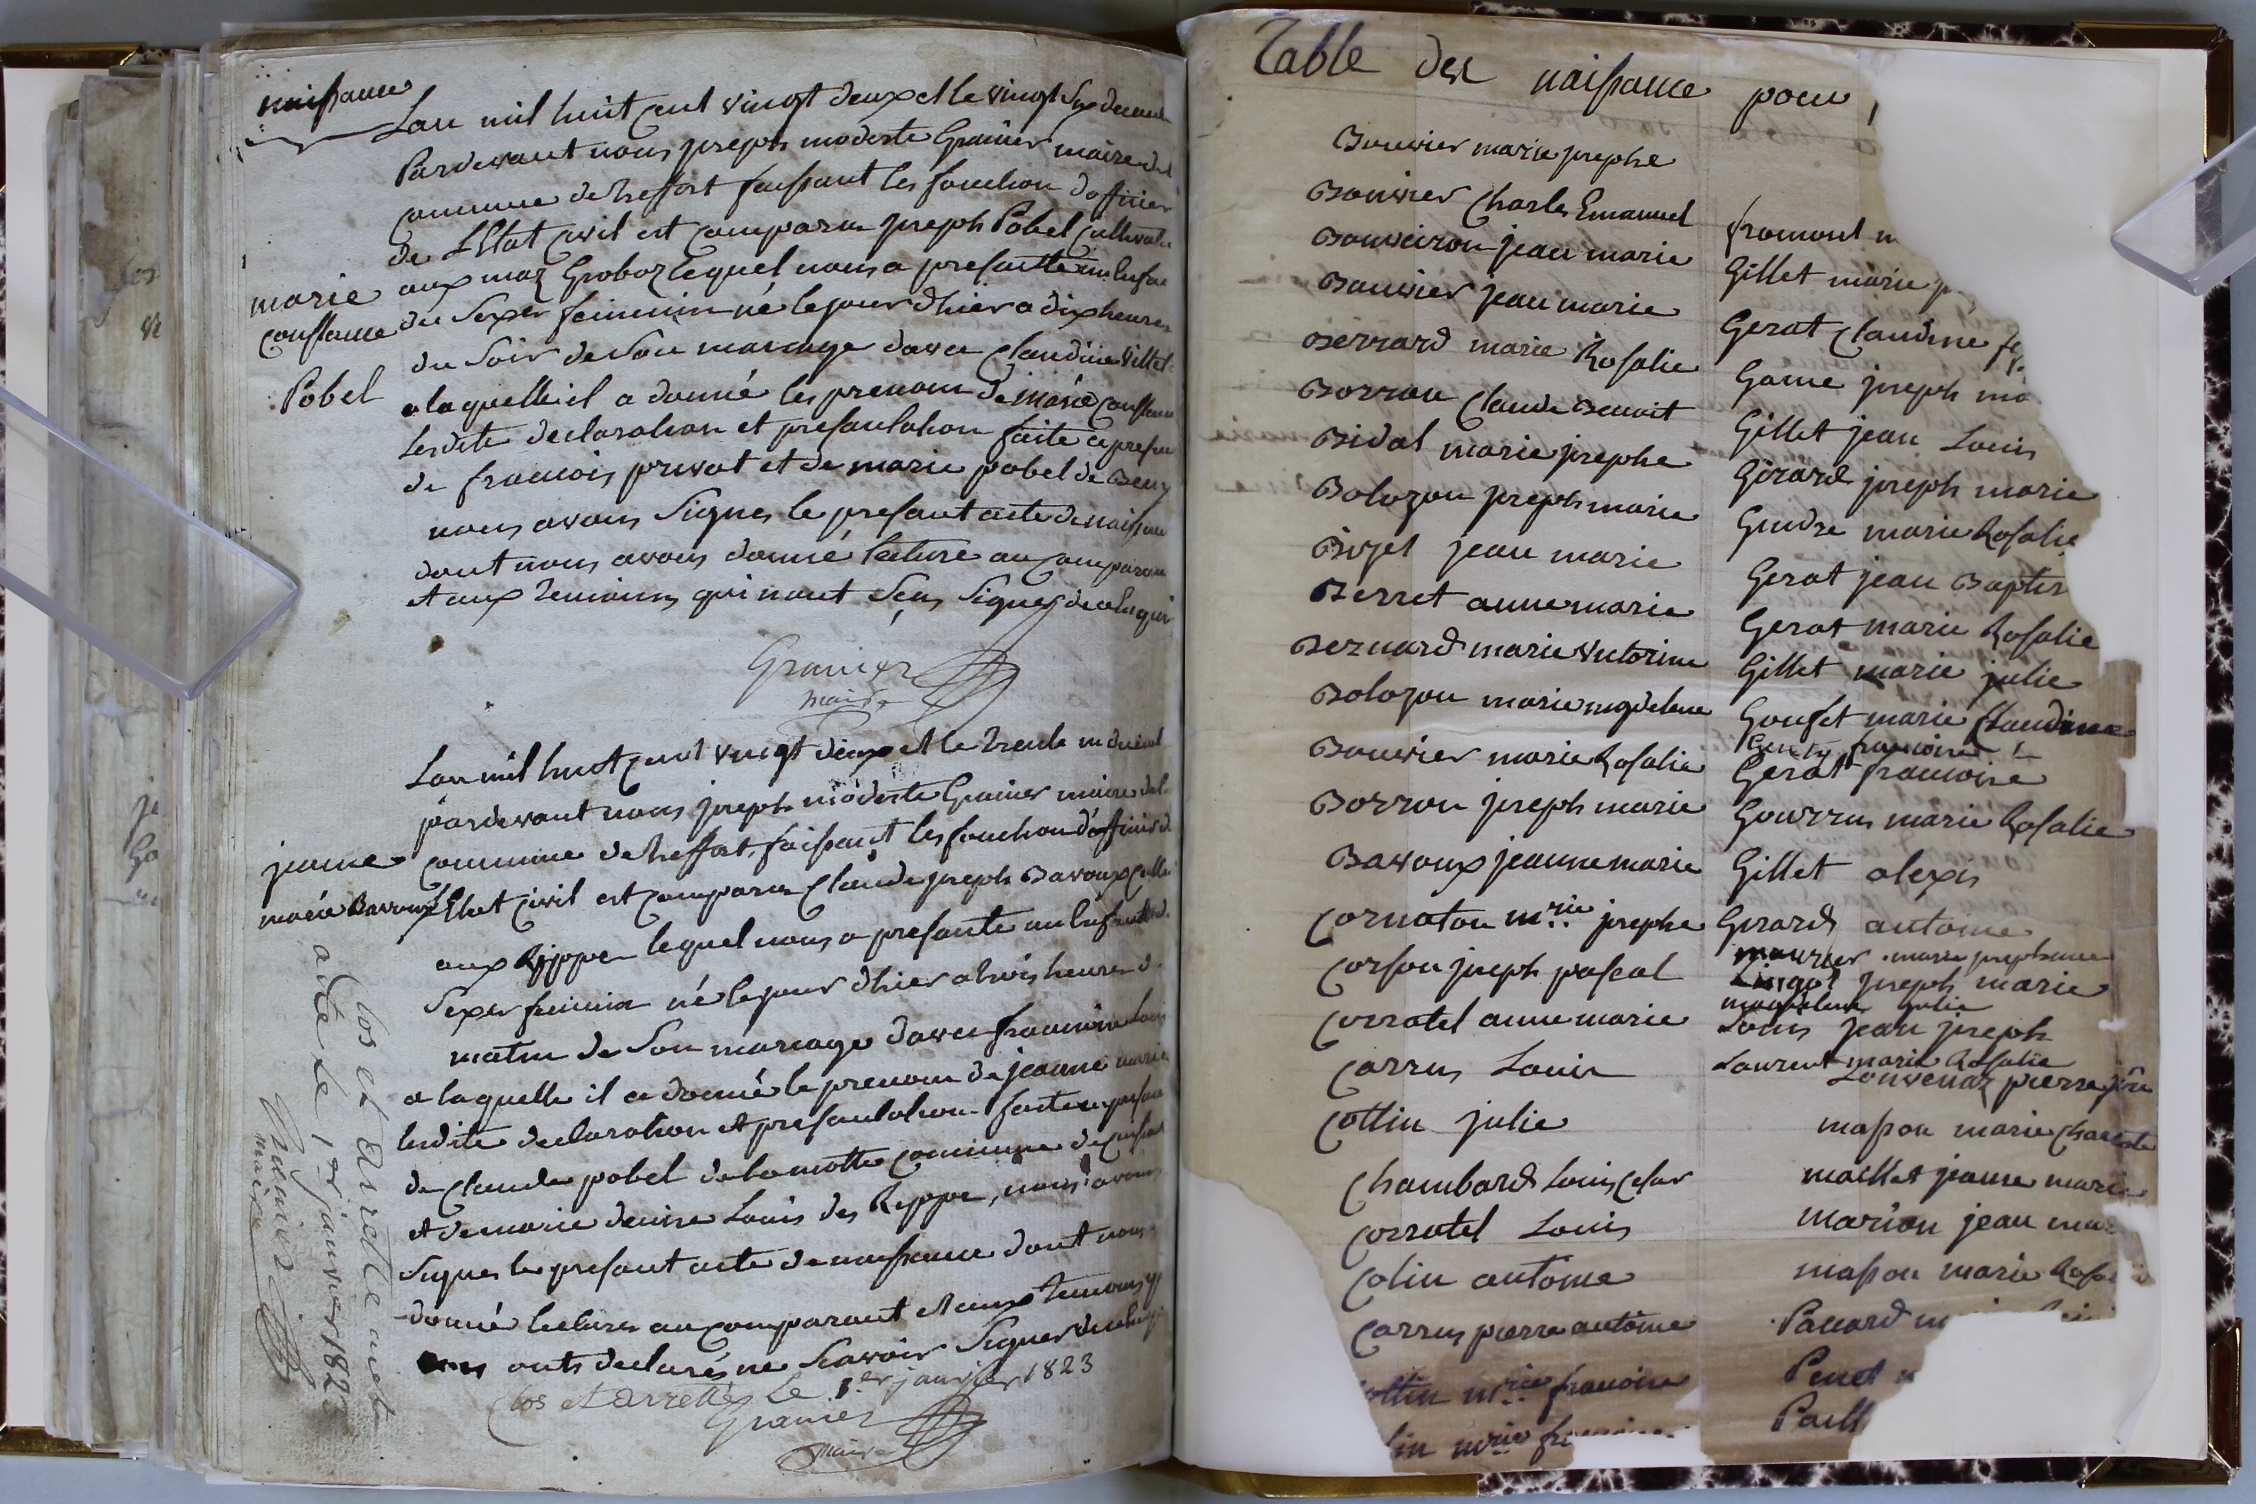 naissance
Lan mil huit cent vingt deux et le vingt six
Pardevant nous joseph modeste Granier maire de
commune de treffort faissant les fonction dofficier
de L'Etat civil est comparu joseph Pobel
aux maz Groboz lequel nous a presante un
du sexer feminin né le jour dhier a dix heures
du soir de son mariage davec Claudine Villet
a laquelle il a donné les prenom de marie constance
lesdite declaration et presantation faite
de francois privat et de marie pobel de
nous avons signes le presant acte de
dont nous avons donné lecture au
et aux temoins qui nont seus signes
Granier
maire
marie
constance
Pobel
Lan mil huit cent vingt deux et le trente
pardevant nous joseph modeste Granier maire de
commune de treffort, faissant les fonction dofficier
L'Etat civil est comparu Claude joseph Bavoux
aux Rippe lequel nous a presante un
sexer feminin né le jour dhier a trois heures
matin de son mariage davec francoise Louis
a laquelle il a donné le prenom de jeanne marie
lesdite declaration et presantation faite
de Claude pobel de lamotte commune de
et de marie denise Louis des Rippe, nous avons
signes le presant acte de naissance dont nous
donné lecture au comparant et aux temoins
onts declarés ne scavoir signer
Clos et arrettes le 1er janvier 1823
Granier
maire
jeanne
marie Bavoux
clos et arrette
le 1er janvier 182
Granier
maire
Table des naissance pour
Bouvier marie josephe
Bouvier Charles Emanuel
Bouveiron jean marie
Bouvier jean marie
Berrard marie Rosalie
Borron Claude Benoit
Bidal marie josephe
Bolozon joseph marie
jean marie
Berret anne marie
Bernard marie victorine
Bolozon marie magdelene
Bouvier marie Rosalie
Borron joseph marie
Bavoux jeanne marie
Cornaton mrie josephe
Corson joseph pascal
Corratel anne marie
Carrus Louis
Cottin julie
Chambard Louis Cesar
Corratel Louis
Colin antoine
Carrus pierre antoine
mrie francoise
mrie
fromont
Gillet marie
Gerat Claudine
Game joseph
Gillet jean Louis
Girard joseph marie
Gindre marie Rosalie
Gerat jean Baptis
Gerat marie Rosalie
Gillet marie julie
Gouset marie Claudine
francoise
Gerat francoise
Gourrus marie Rosalie
Gillet alexis
Girard antoine
marie josephine
joseph marie
magdelene julie
Louis jean joseph
Laurent marie Rosalie
pierre
masson marie
maillet jeanne marie
marion jean
masson marie
Pacard
Penet